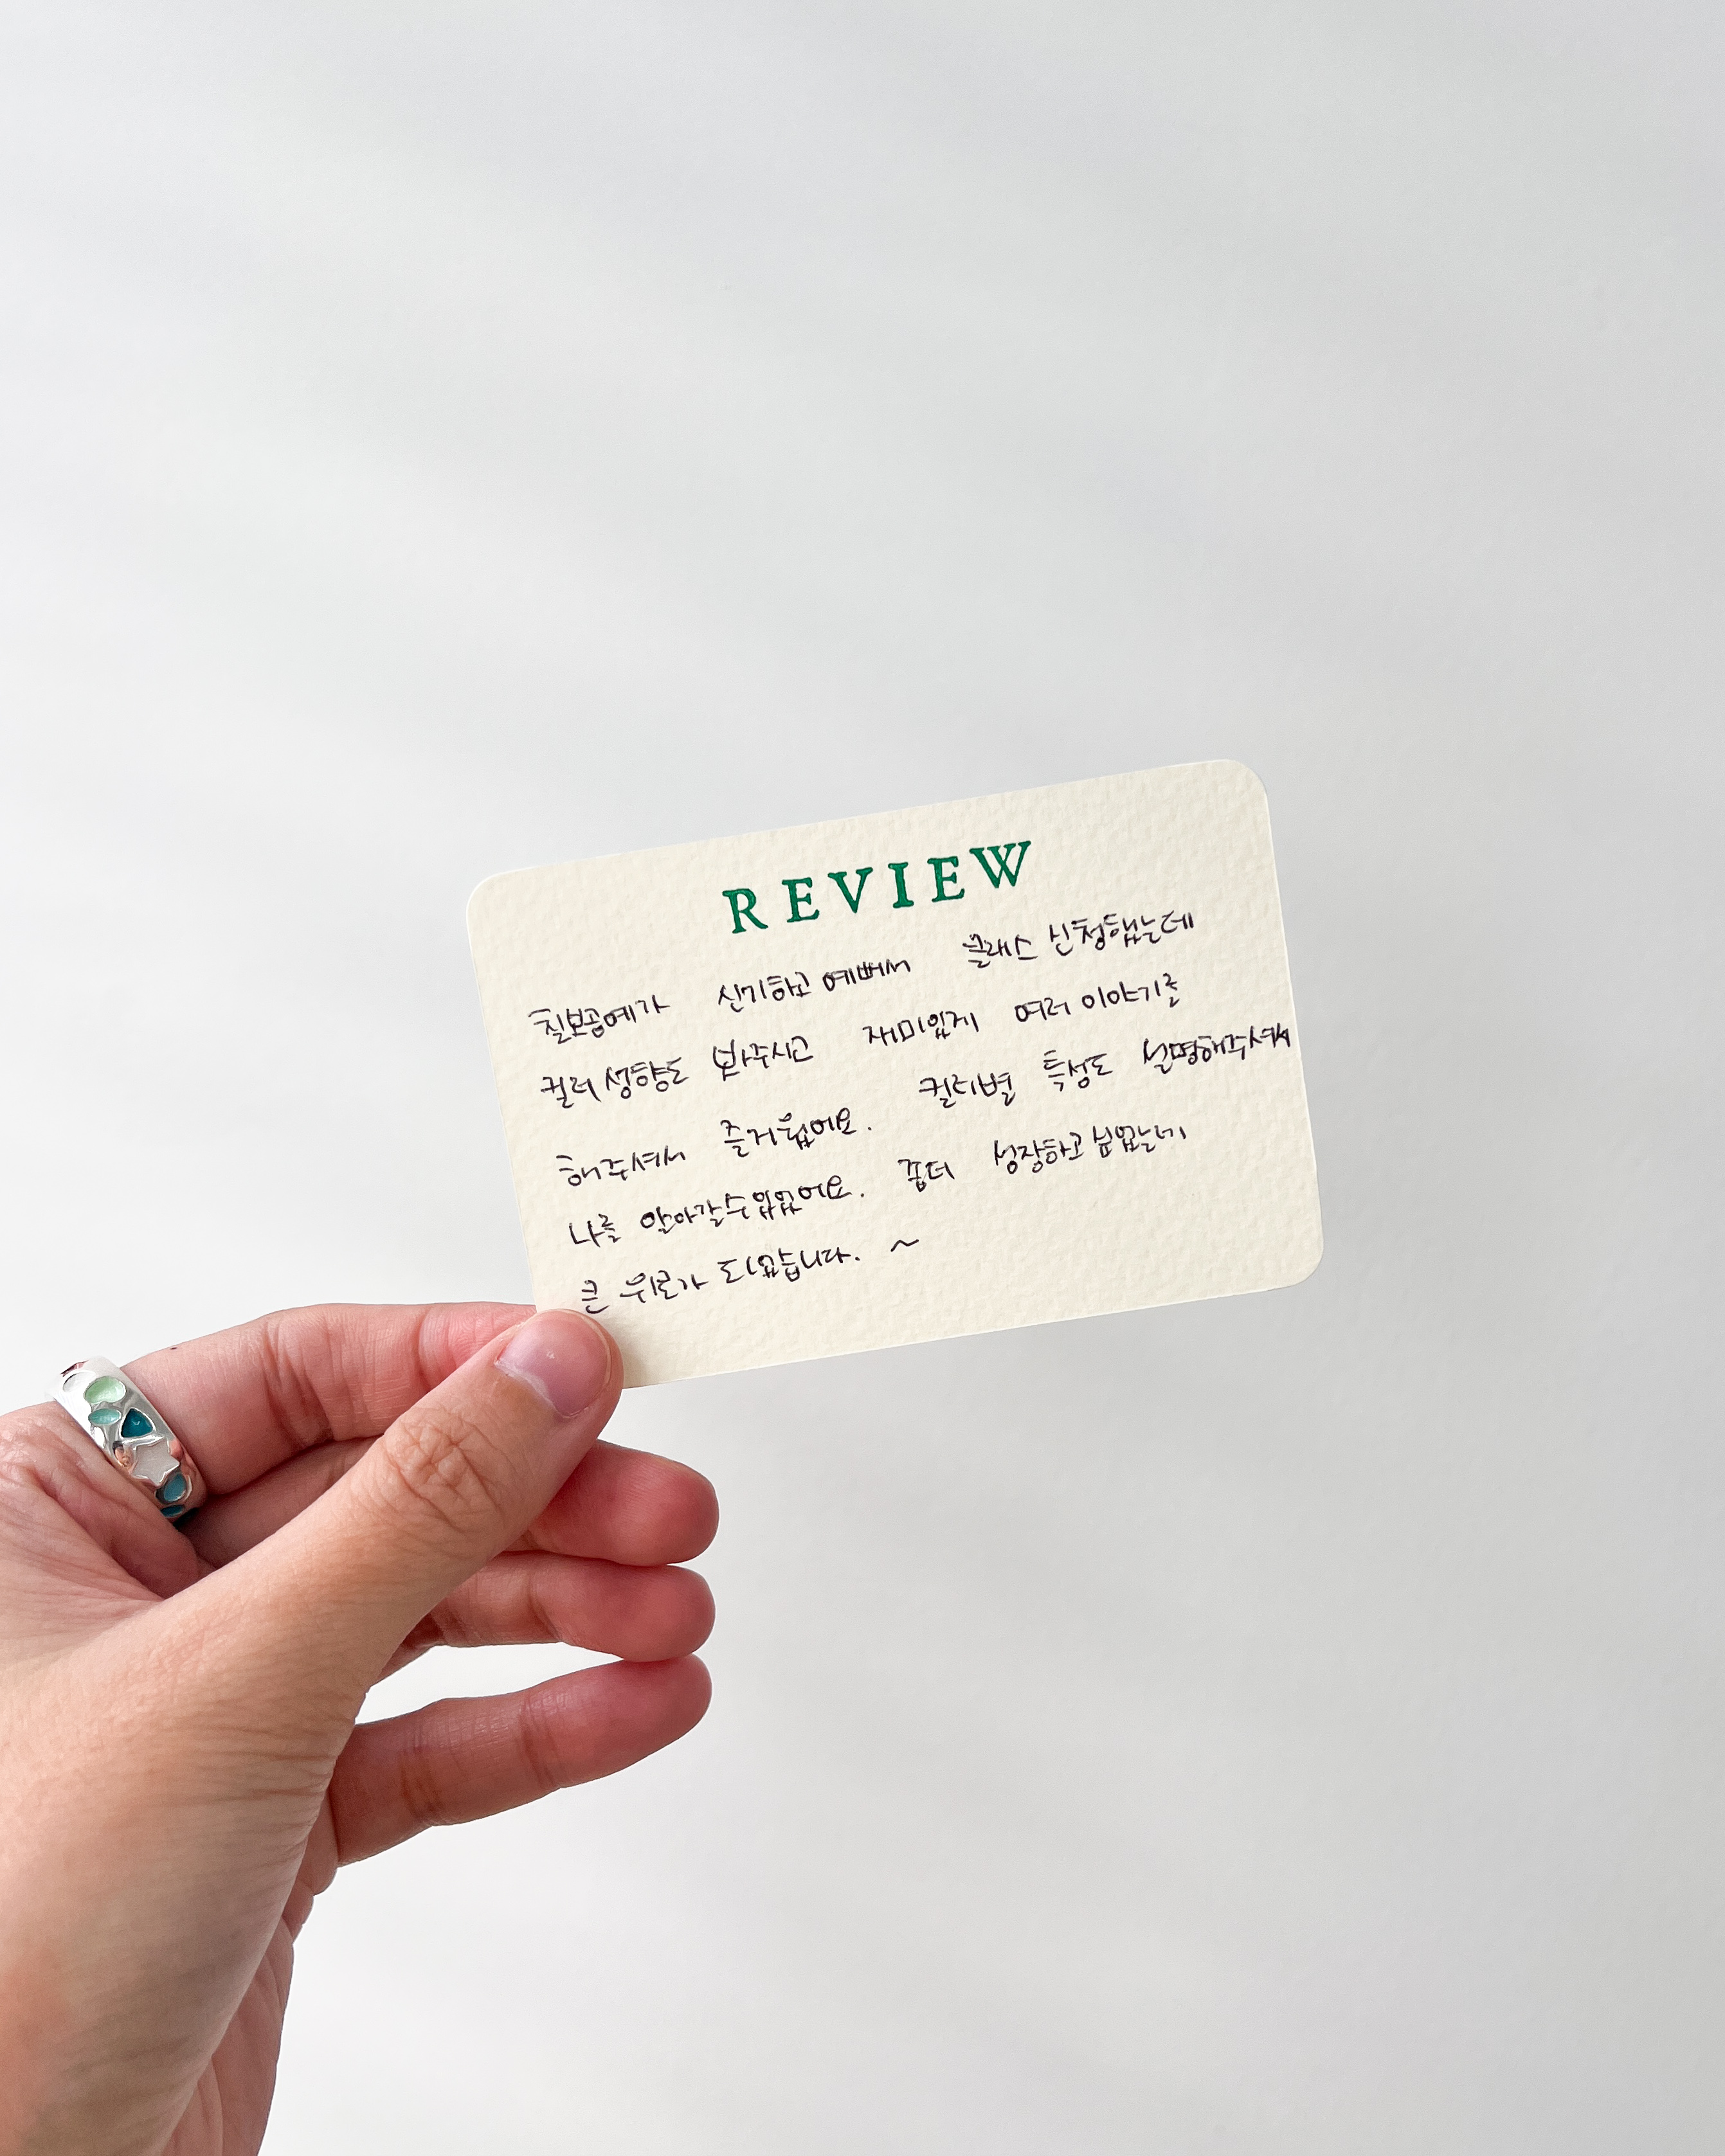 REVIEW
칠보공예가 신기하고 예뻐서 클래스 신청했는데
컬러 성향도 봐주시고 재미있게 여러 이야기를
해주셔서 즐거웠어요. 컬러별 특성도 설명해주셔서
나를 알아갈수있었어요. 좀더 성장하고 싶었는데
큰 위로가 되었습니다. ~